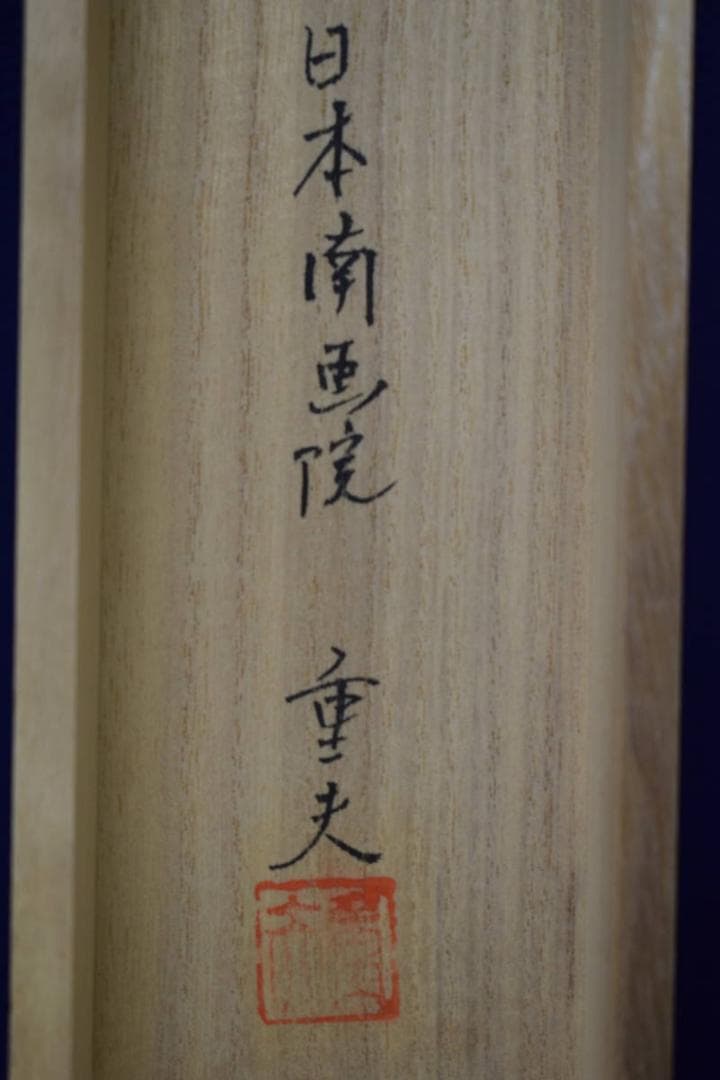 日本南画院 重夫